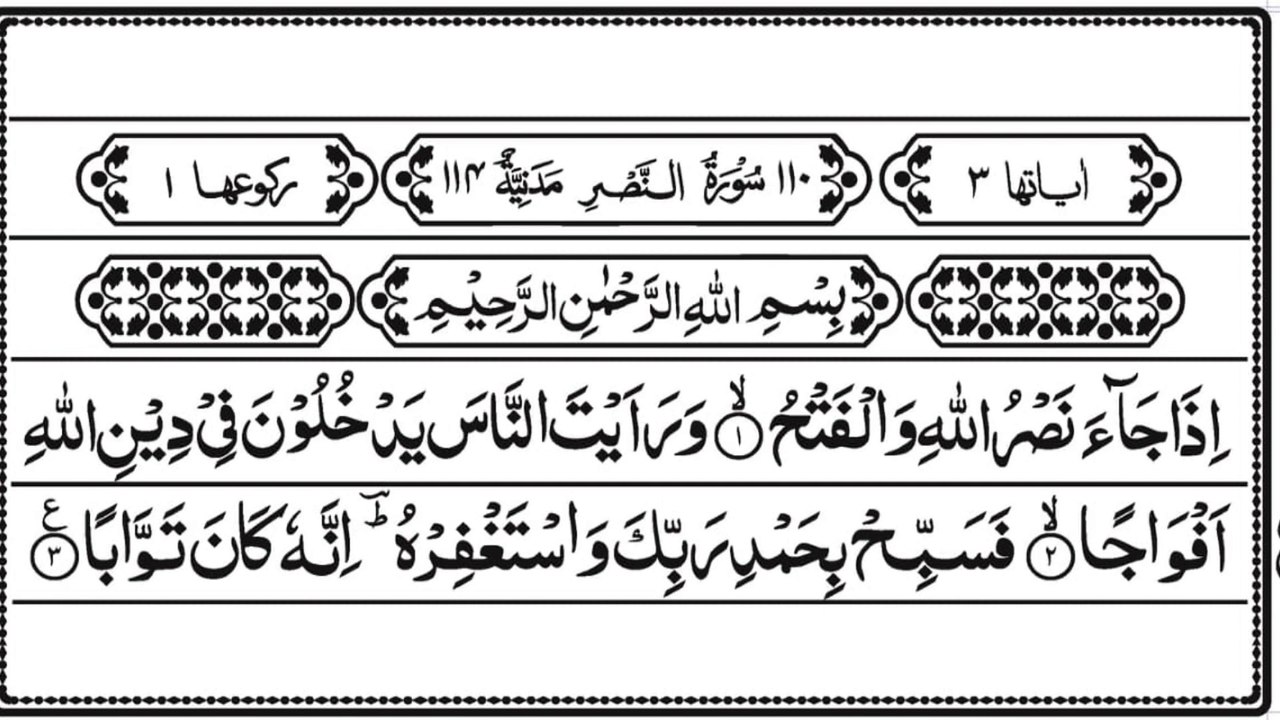 اٰیاتها ٣ ١١٠ سُوْرَةُ النَّصْرِ مَدَنِيَّةٌ ١١٤ ركوعها ١
بِسْمِ اللهِ الرَّحْمٰنِ الرَّحِيْمِ
اِذَا جَآءَ نَصْرُ اللهِ وَالْفَتْحُ ۙ ١ وَرَاَيْتَ النَّاسَ يَدْخُلُوْنَ فِيْ دِيْنِ اللهِ
اَفْوَاجًا ۙ ٢ فَسَبِّحْ بِحَمْدِ رَبِّكَ وَاسْتَغْفِرْهُ ؕ اِنَّهٗ كَانَ تَوَّابًا ٣ ع